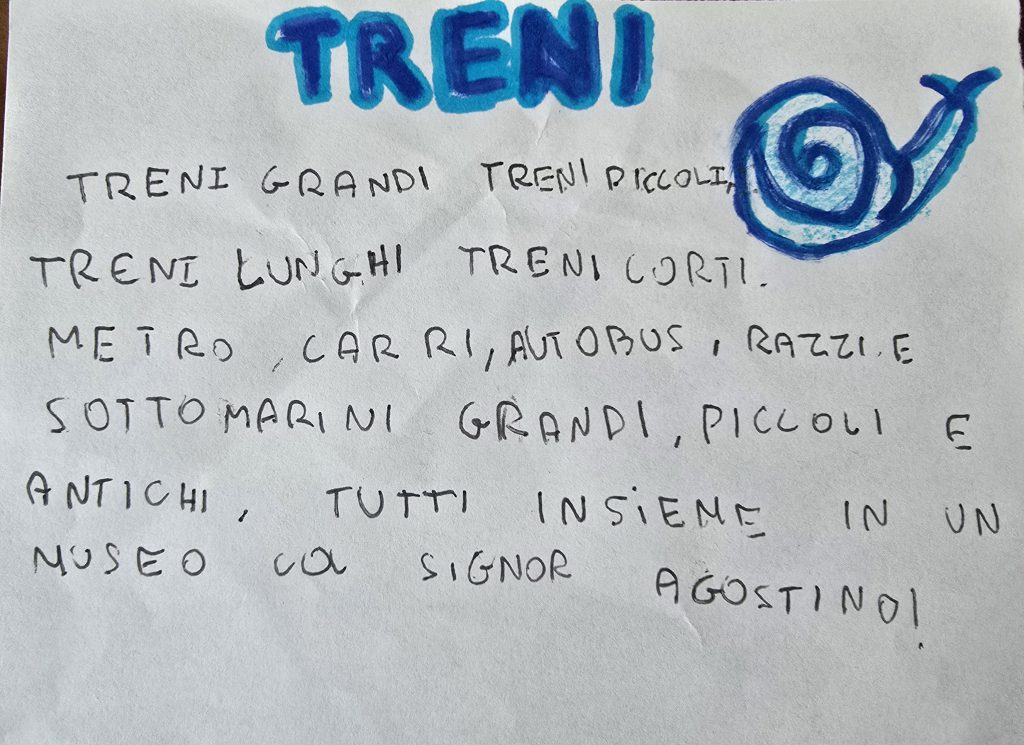 TRENI
TRENI GRANDI TRENI PICCOLI,
TRENI LUNGHI TRENI CORTI.
METRO, CARRI, AUTOBUS, RAZZI E
SOTTOMARINI GRANDI, PICCOLI E
ANTICHI, TUTTI INSiEME IN UN
MUSEO COL SIGNOR AGOSTINO!